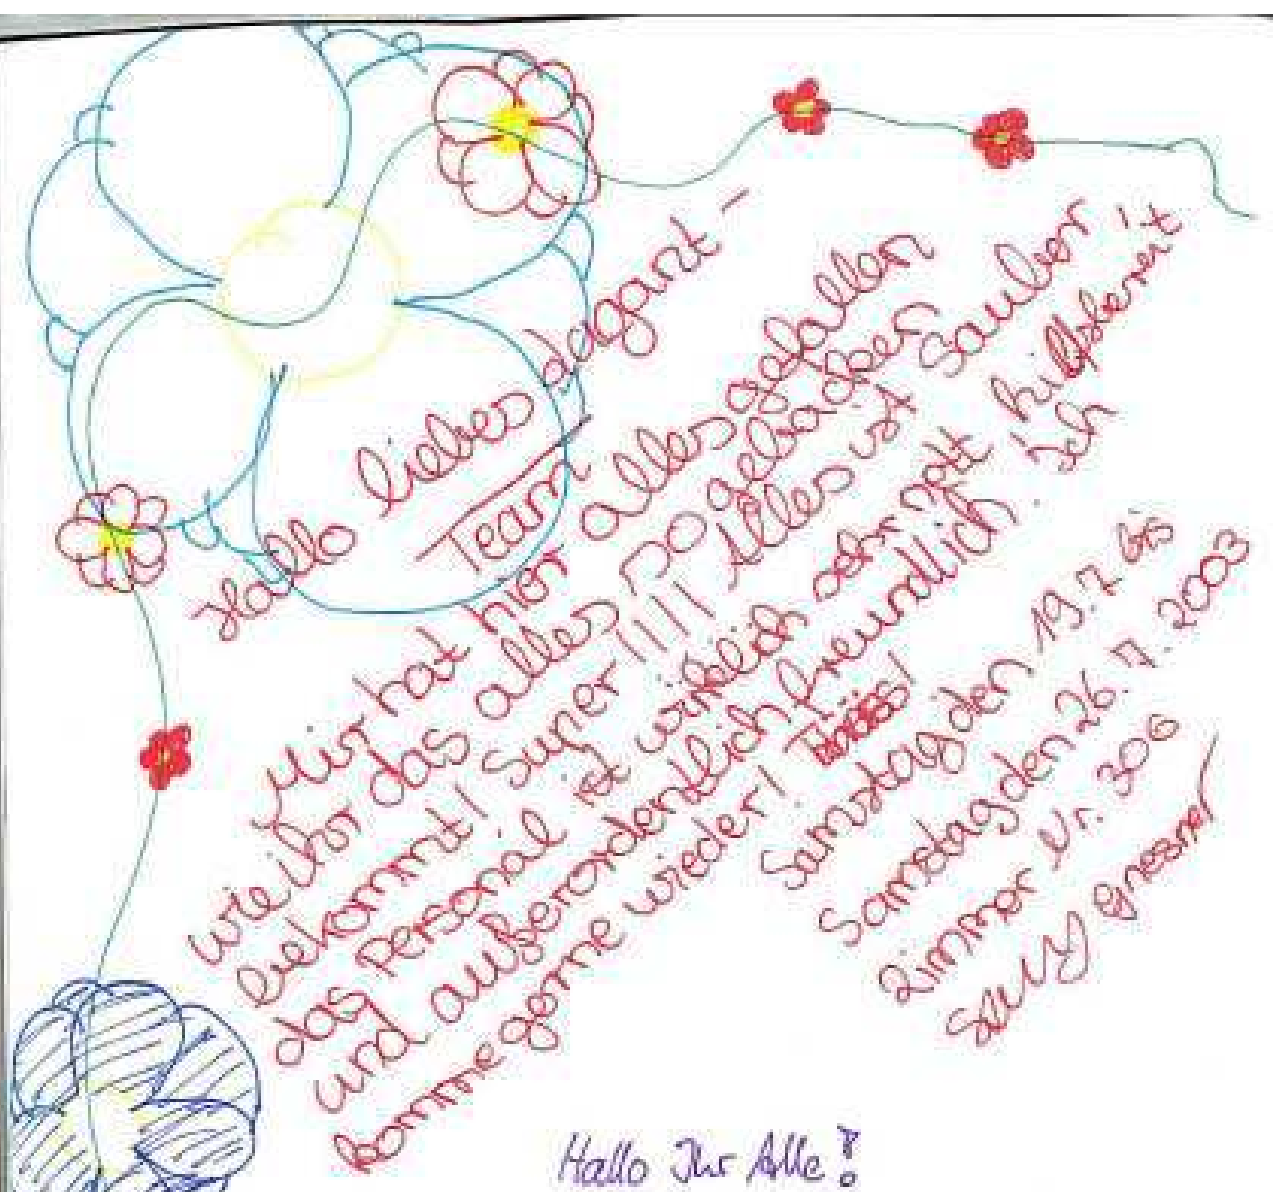 Hallo liebes
Team
Mir hat hier alles gefallen
wie ihr das alles so gebacken
bekommt! Super!!!! Alles ist sauber,
das Personal ist wirklich sehr nett hilfsbereit
und außerordentlich freundlich. Ich
komme gerne wieder!
Samstag den 19.7 bis
Samstag den 26.7.2003
Zimmer Nr. 306
Hallo Ihr Alle!